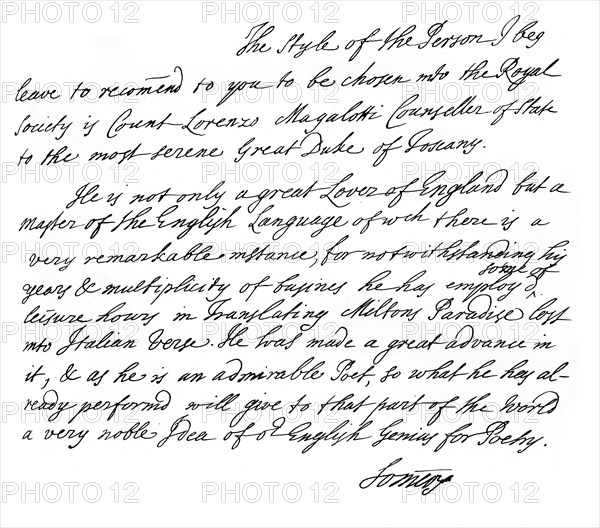 The Style of the Person I beg
leave to recomend to you to be chosen into the Royal
Society is Count Lorenzo Magalotti Counseller of State
to the most serene Great Duke of Toscany.
He is not only a great Lover of England but a
master of the English Language of wch there is a
very remarkable instance, for notwithstanding his
years & multiplicity of busines he has employd some of
leisure hours in Translating Miltons Paradise lost
into Italian Verse. He has made a great advance in
it, & as he is an admirable Poet, so what he has al-
ready performd will give to that part of the World
a very noble Idea of or English Genius for Poetry.
Somers
PHOTO 12